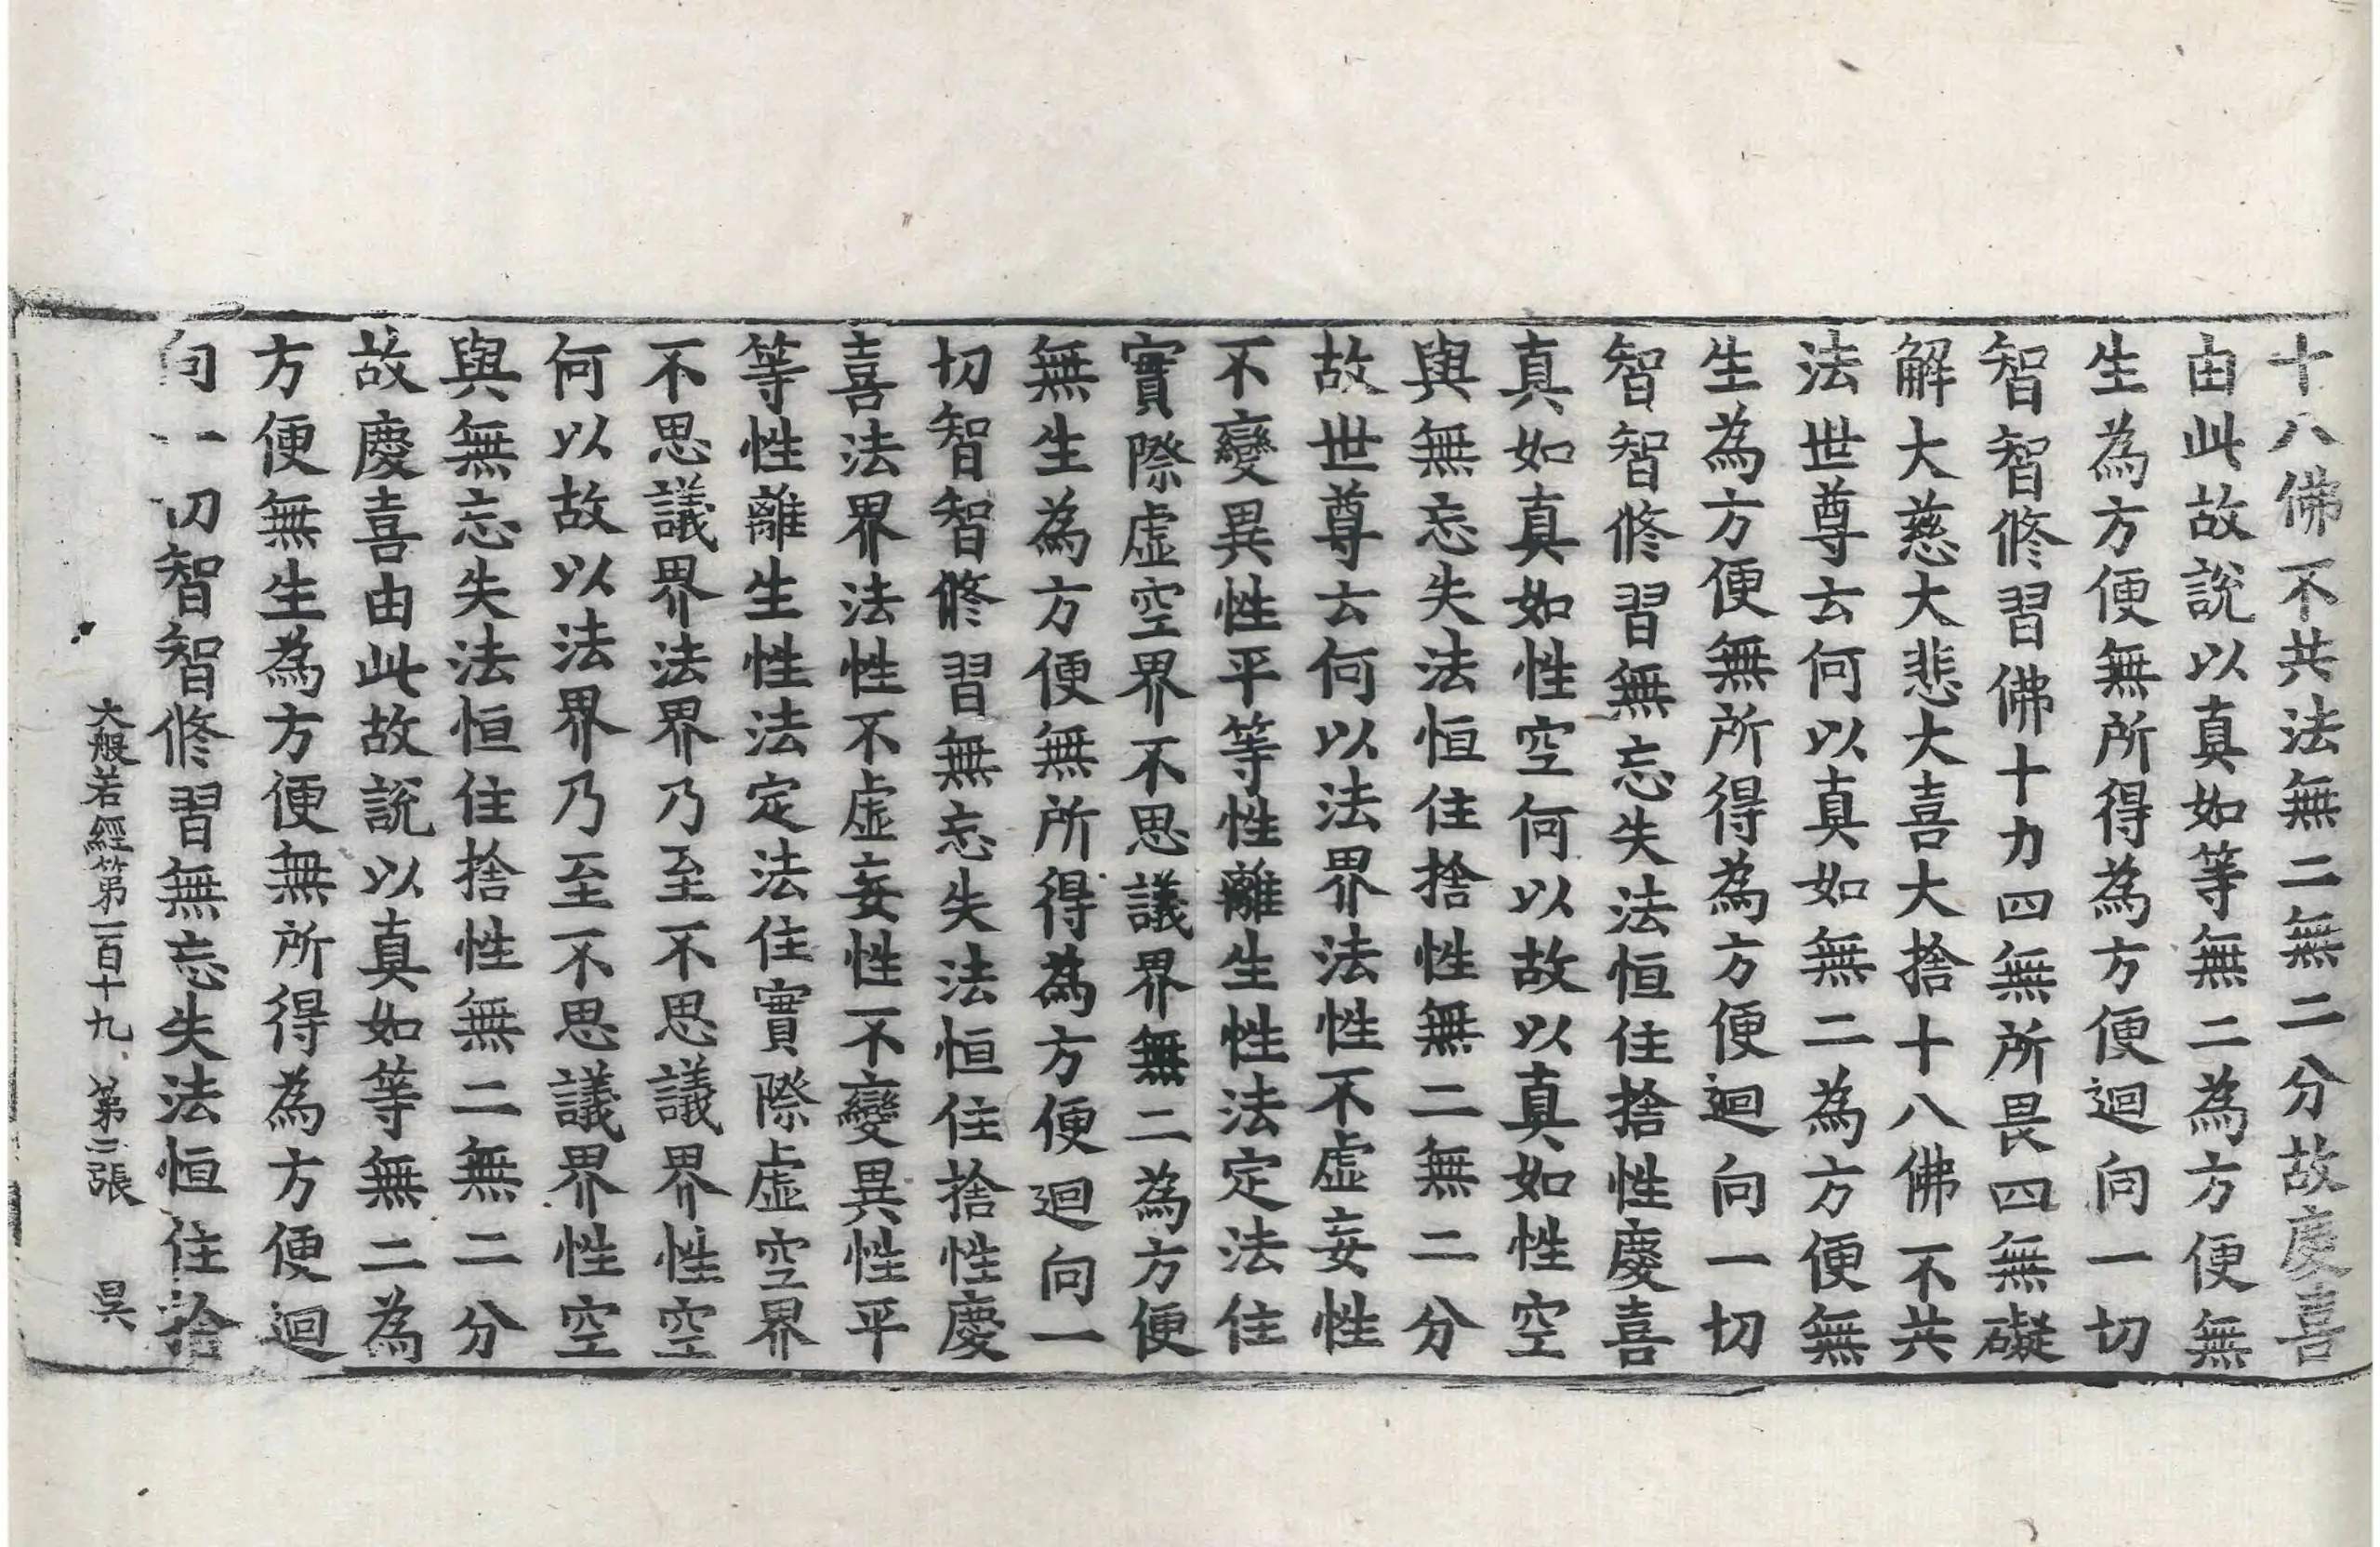 十八佛不共法無二無二分故慶喜
由此故說以真如等無二為方便無
生為方便無所得為方便迴向一切
智智修習佛十力四無所畏四無礙
解大慈大悲大喜大捨十八佛不共
法世尊云何以真如無二為方便無
生為方便無所得為方便迴向一切
智智修習無忘失法恒住捨性慶喜
真如真如性空何以故以真如性空
與無忘失法恒住捨性無二無二分
故世尊云何以法界法性不虛妄性
不變異性平等性離生性法定法住
實際虛空界不思議界無二為方便
無生為方便無所得為方便迴向一
切智智修習無忘失法恒住捨性慶
喜法界法性不虛妄性不變異性平
等性離生性法定法住實際虛空界
不思議界法界乃至不思議界性空
何以故以法界乃至不思議界性空
與無忘失法恒住捨性無二無二分
故慶喜由此故說以真如等無二為
方便無生為方便無所得為方便迴
向一切智智修習無忘失法恒住捨
大般若經第一百十九 第三張 昃